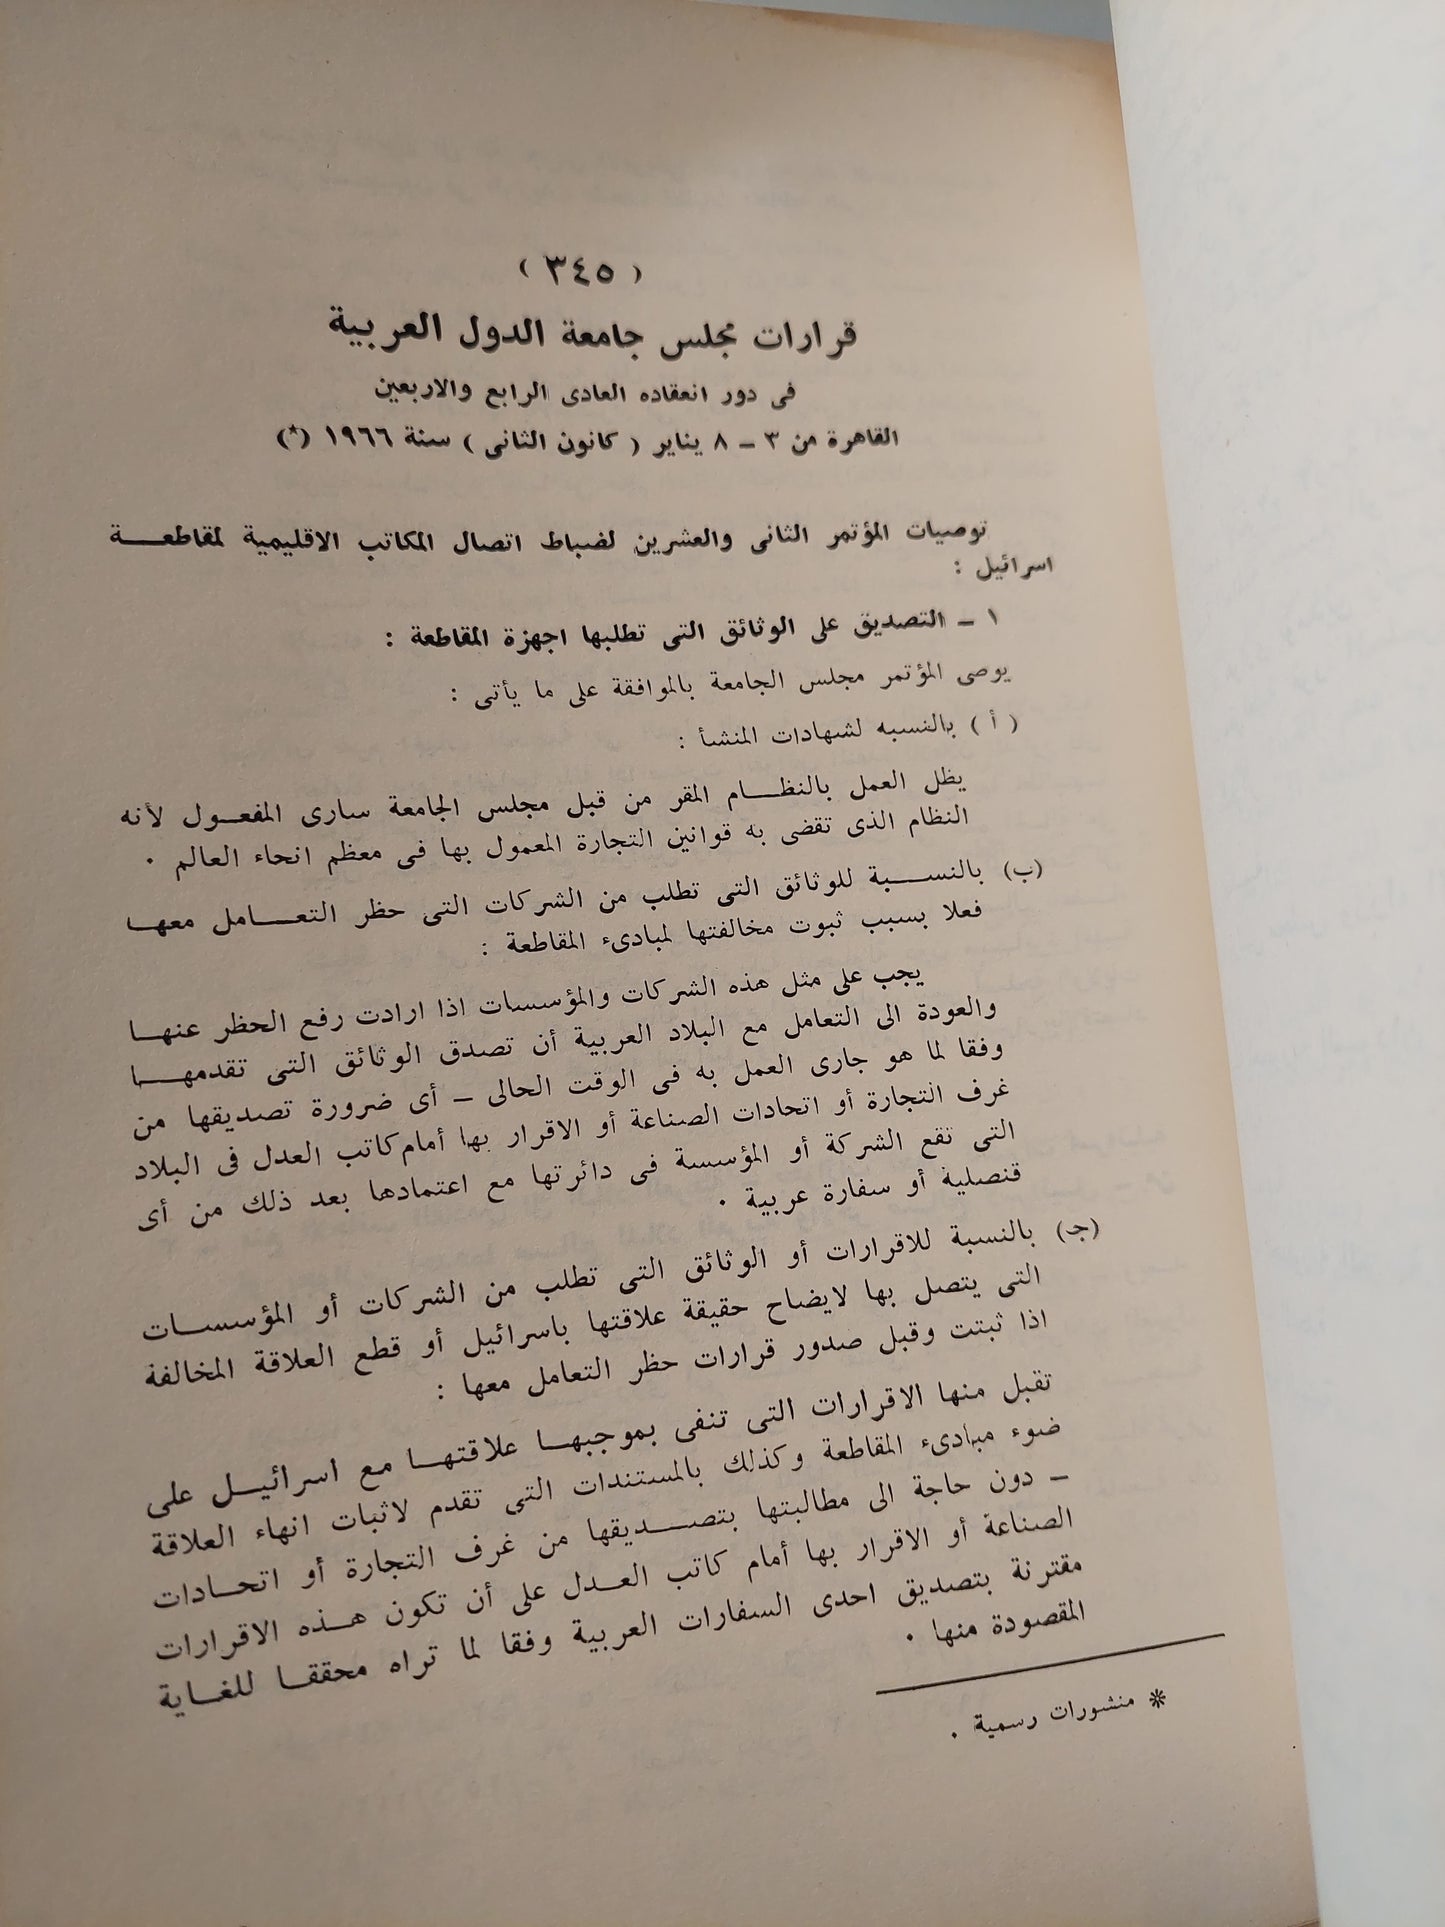 ( ٣٤٥ )
قرارات مجلس جامعة الدول العربية
فى دور انعقاده العادى الرابع والاربعين
القاهرة من ٣ - ٨ يناير ( كانون الثانى ) سنة ١٩٦٦ (*)
توصيات المؤتمر الثانى والعشرين لضباط اتصال المكاتب الاقليمية لمقاطعة
اسرائيل :
١ - التصديق على الوثائق التى تطلبها اجهزة المقاطعة :
يوصى المؤتمر مجلس الجامعة بالموافقة على ما يأتى :
( أ ) بالنسبه لشهادات المنشأ :
يظل العمل بالنظام المقر من قبل مجلس الجامعة سارى المفعول لأنه
النظام الذى تقضى به قوانين التجارة المعمول بها فى معظم انحاء العالم ٠
(ب) بالنسبة للوثائق التى تطلب من الشركات التى حظر التعامل معها
فعلا بسبب ثبوت مخالفتها لمبادىء المقاطعة :
يجب على مثل هذه الشركات والمؤسسات اذا ارادت رفع الحظر عنها
والعودة الى التعامل مع البلاد العربية أن تصدق الوثائق التى تقدمها
وفقا لما هو جارى العمل به فى الوقت الحالى - أى ضرورة تصديقها من
غرف التجارة أو اتحادات الصناعة أو الاقرار بها أمام كاتب العدل فى البلاد
التى تقع الشركة أو المؤسسة فى دائرتها مع اعتمادها بعد ذلك من أى
قنصلية أو سفارة عربية ٠
(جـ) بالنسبة للاقرارات أو الوثائق التى تطلب من الشركات أو المؤسسات
التى يتصل بها لايضاح حقيقة علاقتها باسرائيل أو قطع العلاقة المخالفة
اذا ثبتت وقبل صدور قرارات حظر التعامل معها :
تقبل منها الاقرارات التى تنفى بموجبها علاقتها مع اسرائيل على
ضوء مبادىء المقاطعة وكذلك بالمستندات التى تقدم لاثبات انهاء العلاقة
- دون حاجة الى مطالبتها بتصديقها من غرف التجارة أو اتحادات
الصناعة أو الاقرار بها أمام كاتب العدل على أن تكون هذه الاقرارات
مقترنة بتصديق احدى السفارات العربية وفقا لما تراه محققا للغاية
المقصودة منها ٠
* منشورات رسمية .